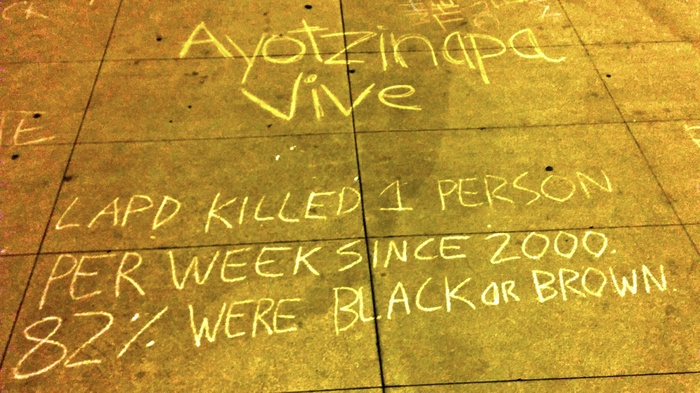 CK
Ayotzinapa
Vive
TE
LAPD KILLED 1 PERSON
PER WEEK SINCE 2000.
82% WERE BLACK OR BROWN.